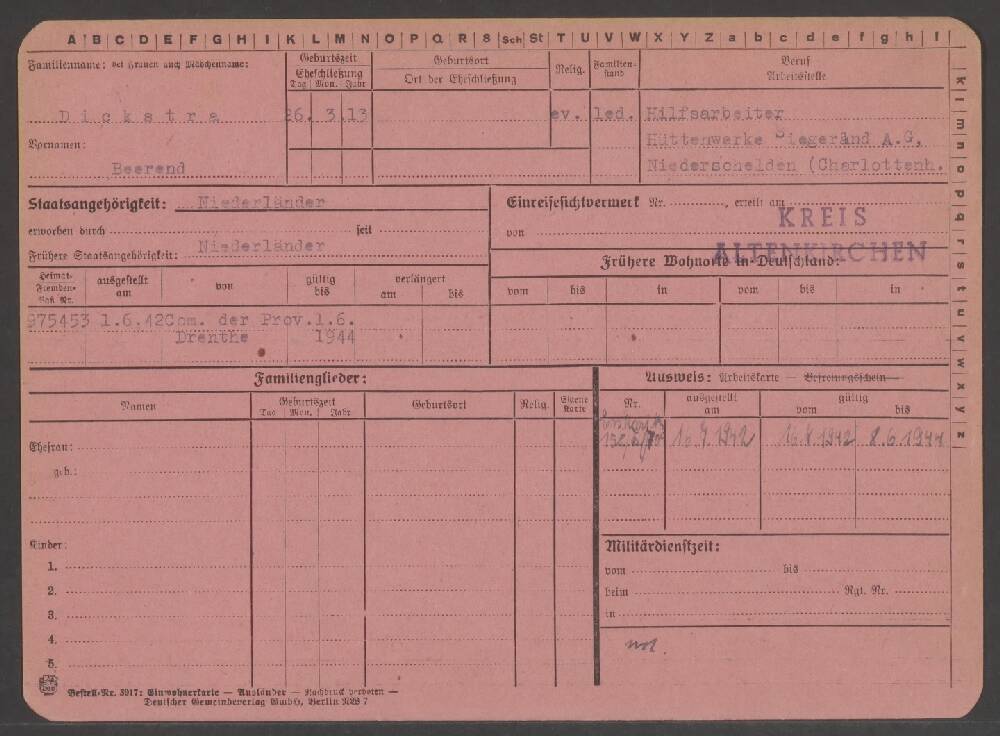 A B C D E F G H I K L M N O P Q R S Sch St T U V W X Y Z a b c d e f g h i
k l m n o p q r s t u v w x y z
Familienname: bei Frauen auch Mädchenname:
Geburtszeit
Eheschließung
Tag Mon. Jahr
Geburtsort
Ort der Eheschließung
Relig.
Familien-
stand
Beruf
Arbeitsstelle
Dickstra
26. 3.13
ev.
led.
Hilfsarbeiter
Hüttenwerke Siegerland A.G,
Niederschelden (Charlottenh.
Vornamen:
Beerend
Staatsangehörigkeit: Niederländer
erworben durch seit
Frühere Staatsangehörigkeit: Niederländer
Einreisesichtvermerk Nr. , erteilt am
von
KREIS
ALTENKIRCHEN
Frühere Wohnorte in Deutschland:
vom bis in vom bis in
Heimat-
Fremden-
Paß Nr.
ausgestellt
am
von
gültig
bis
verlängert
am bis
975453 1.6.42 Com. der Prov. 1.6.
Drenthe 1944
Familienglieder:
Namen
Geburtszeit
Tag Mon. Jahr
Geburtsort
Relig.
Eigene
Karte
Ehefrau:
geb.:
Kinder:
1.
2.
3.
4.
5.
Ausweis: Arbeitskarte — Befreiungsschein
Nr.
ausgestellt
am
gültig
vom bis
16.7.1942 8.6.1944
Militärdienstzeit:
vom bis
beim Rgt. Nr.
in
Bestell-Nr. 3917: Einwohnerkarte — Ausländer — Nachdruck verboten —
Deutscher Gemeindeverlag GmbH, Berlin NW 7